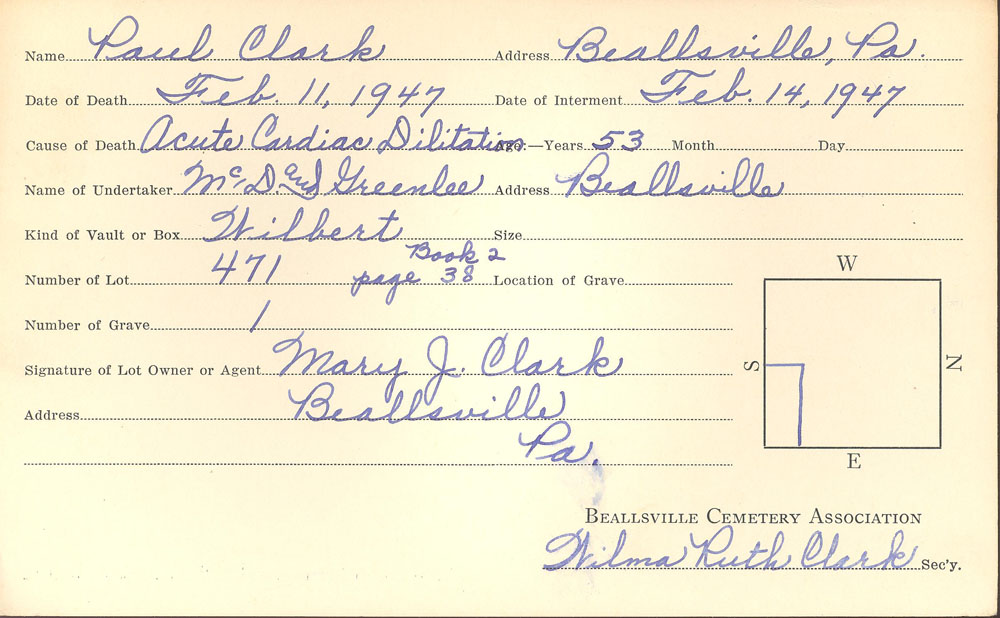 Name Paul Clark Address Beallsville, Pa.
Date of Death Feb. 11, 1947 Date of Interment Feb. 14, 1947
Cause of Death Acute Cardiac Dilitation Age:—Years 53 Month Day
Name of Undertaker McD. and Greenlee Address Beallsville
Kind of Vault or Box Wilbert Size
Book 2
Number of Lot 471 page 38 Location of Grave
W
Number of Grave 1
Signature of Lot Owner or Agent Mary J. Clark
S N
Address Beallsville
Pa.
E
BEALLSVILLE CEMETERY ASSOCIATION
Wilma Ruth Clark Sec'y.